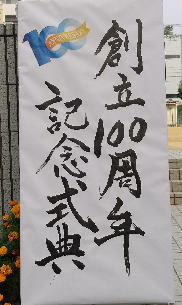 100
創立100周年
記念式典